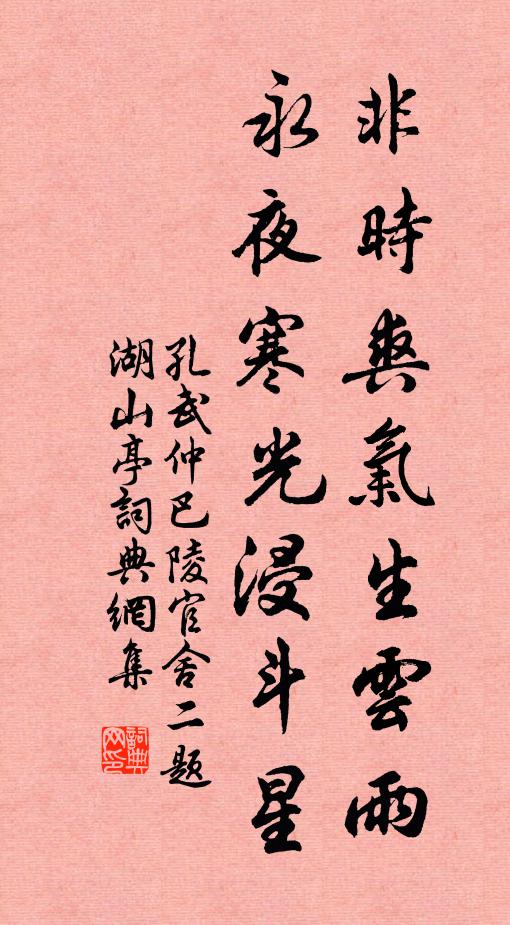 非時爽氣生雲雨
永夜寒光浸斗星
孔武仲巴陵官舍二題
湖山亭詞典網集
詞典网印